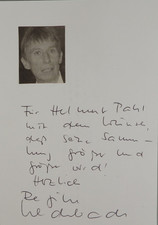 Für Helmut Pahl
mit dem Wunsche,
daß seine Samm-
lung größer und
größer wird!
Herzlich